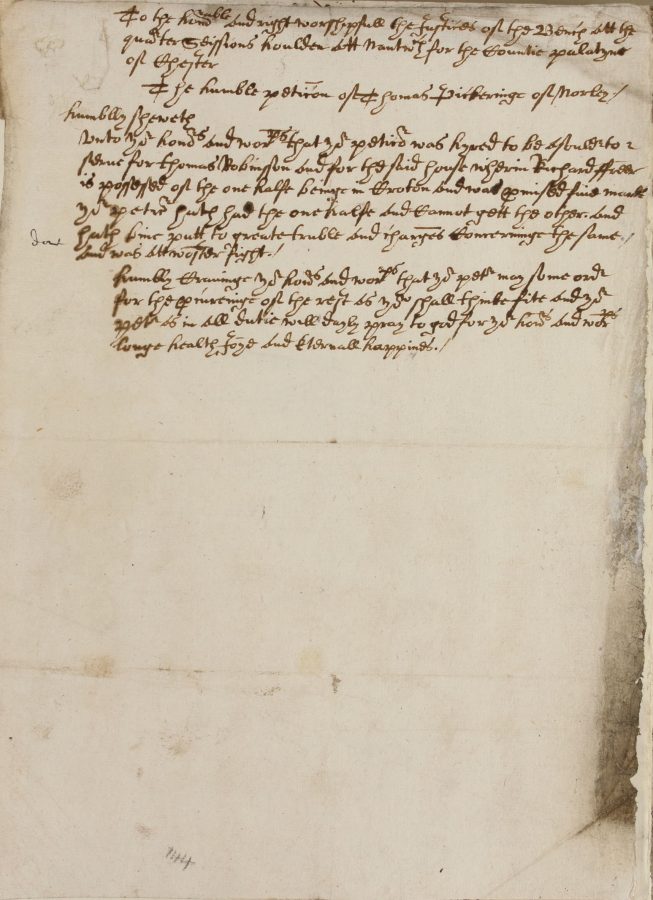 To the hon:ble and right worshipfull the Justices of the Bench att the
quarter Seissions houlden att Nantw:ch for the Countie palatyne
of Chester
The humble peticon of Thomas Pickeringe of Norley /
humbly sheweth
Unto yr honors and worpps that yr peticr was hyred to be a souler to
serve for Thomas Robinson and for the said house wherin Richard ffreer
is possessed of the one halfe beinge in Croten and was pmised five mark
yr petr hath had the one halfe and Cannot gett the other and
hath bine putt to greate truble and charges Concerninge the same /
and was att wavster fight /
humbly Craveinge yr honrs and worpps that yr petr may some ordr
for the pcureinge of the rest as you shall thinke fite and yr
petr as in all dutie will dayly pray to god for yr honrs and worpps
longe health Joye and Eternall happines /
144